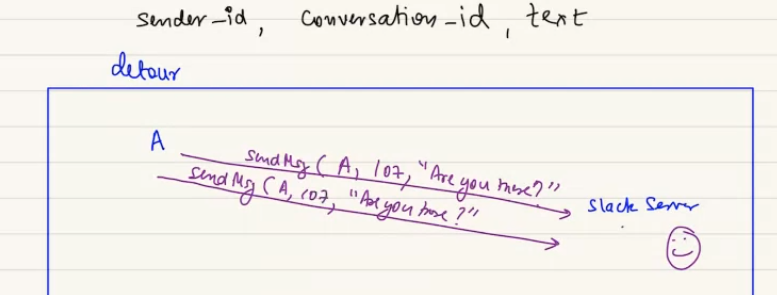 sender_id, conversation_id, text
detour
A
sendMsg (A, 107, "Are you there?"
sendMsg (A, 107, "Are you there?"
Slack Server